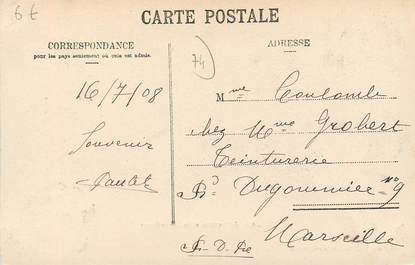 6€
CARTE POSTALE
CORRESPONDANCE
pour les pays seulement où cela est admis.
16/7/08
Souvenir
ADRESSE
74
Mme Coulomb
chez Mme Grobert
Teinturerie
Bd Dugommier No 9
Marseille